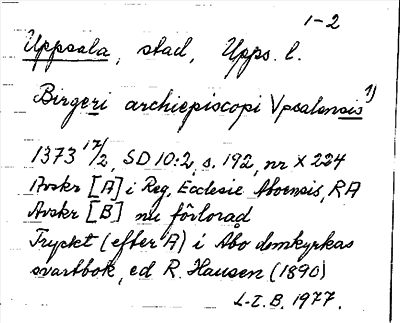 1-2
Uppsala, stad, Upps. l.
Birgeri archiepiscopi Vpsalensis 1)
1373 17/2, SD 10:2, s. 192, nr X 224
Avskr [A] i Reg. Ecclesie Aboensis, RA
Avskr [B] nu förlorad
Tryckt (efter A) i Åbo domkyrkas
svartbok, ed R. Hausen (1890)
L-E. B. 1977.